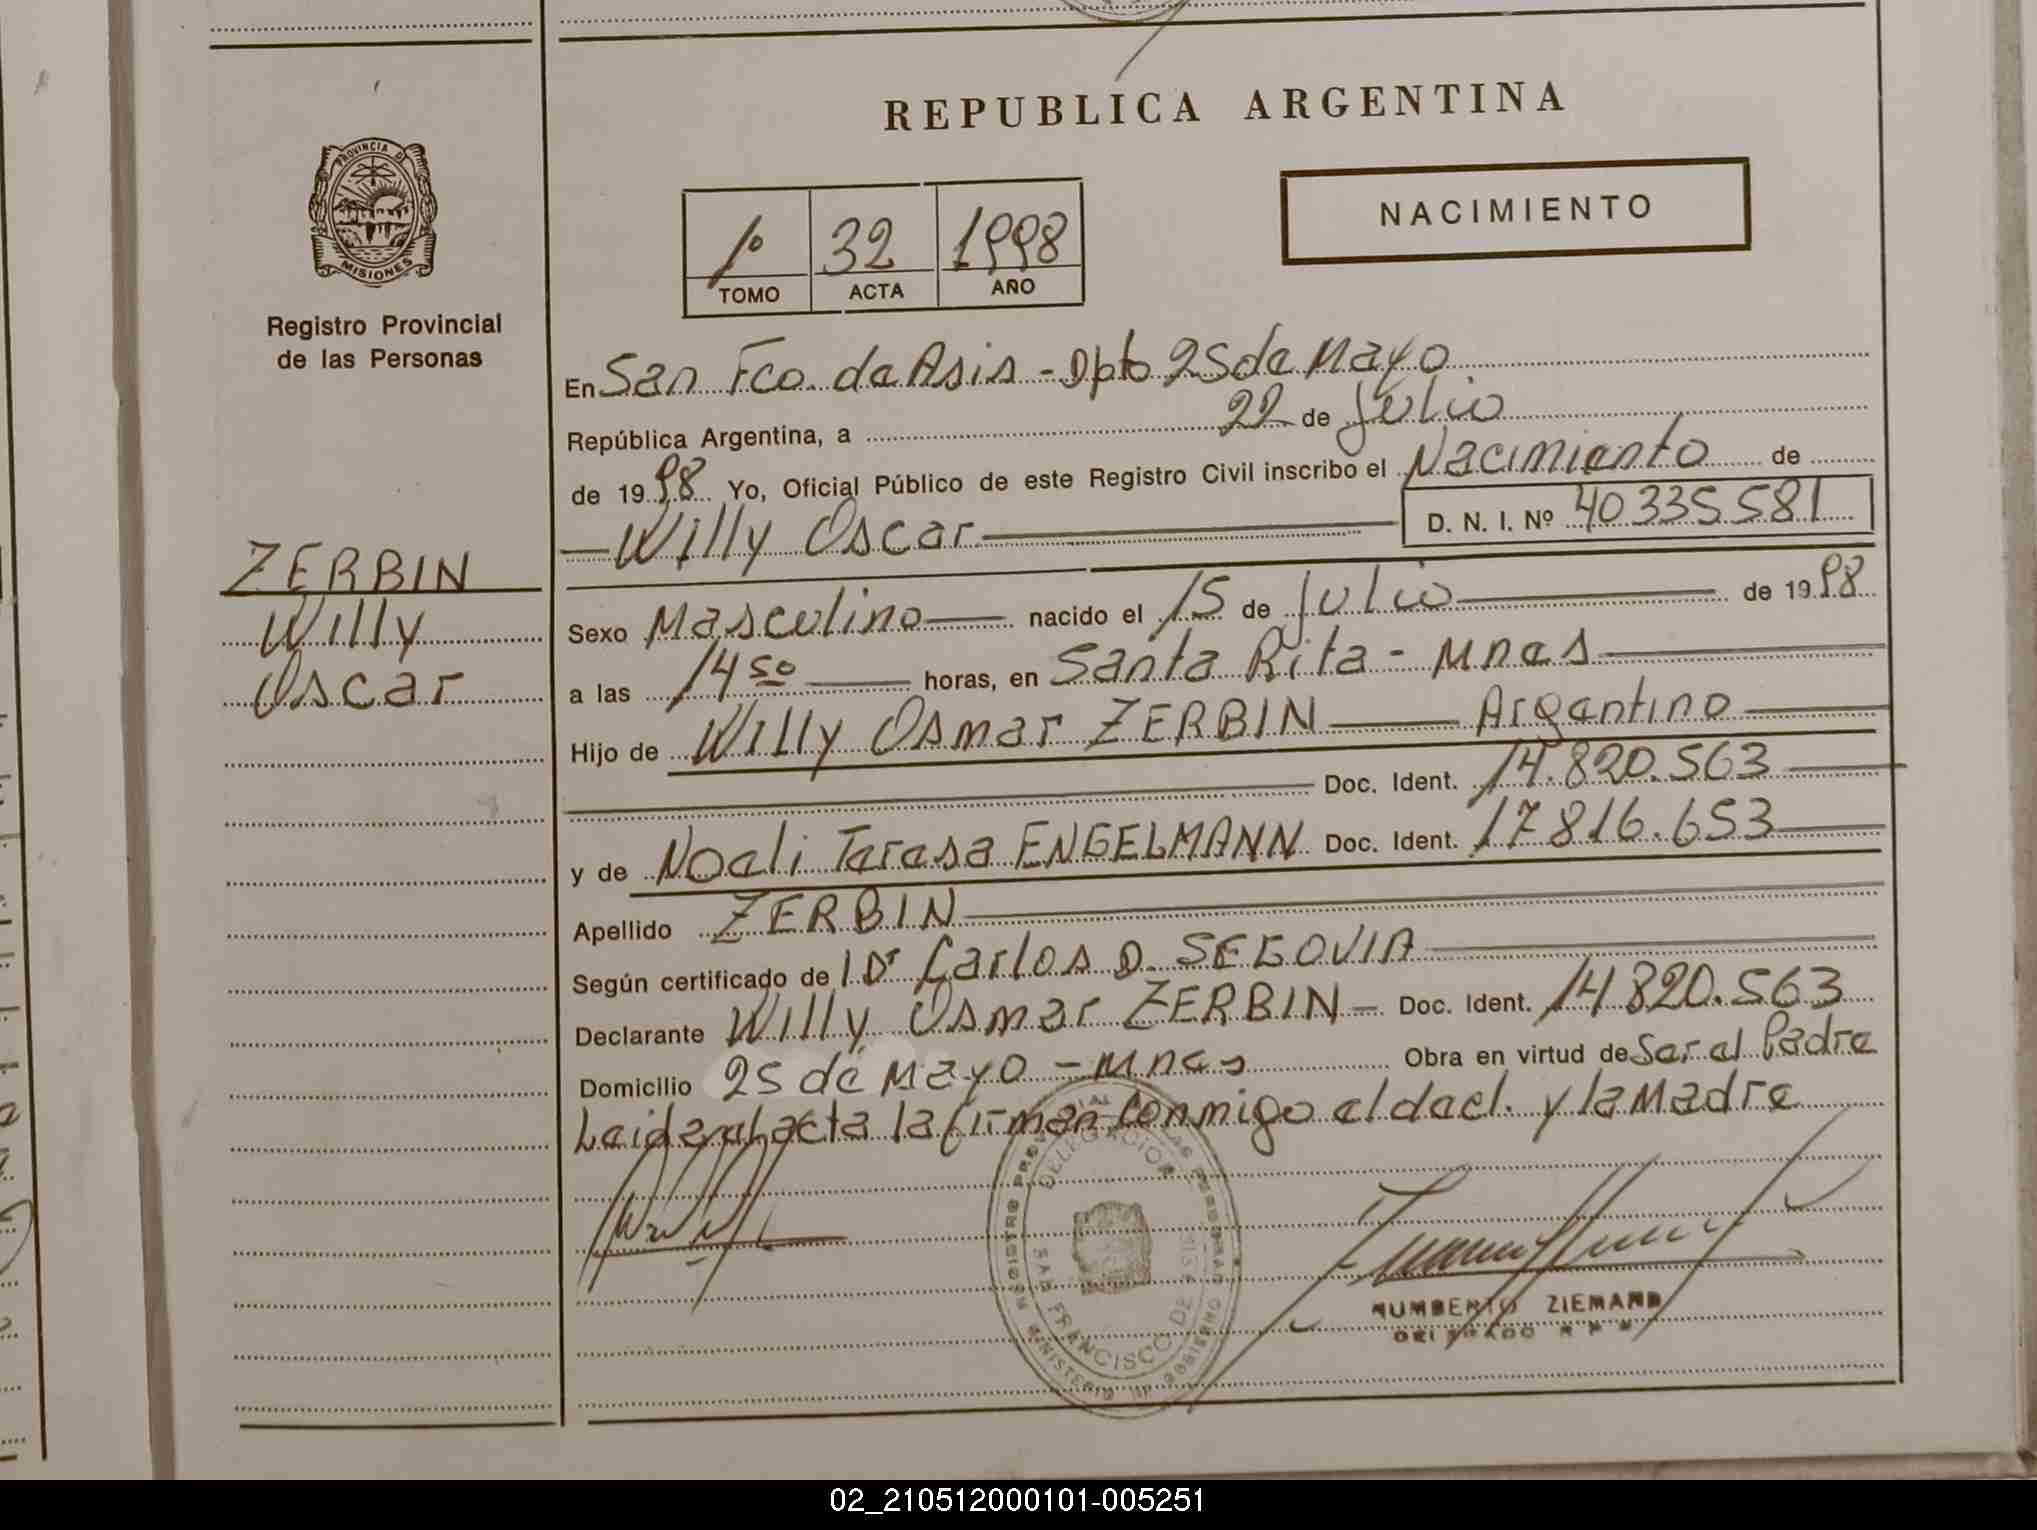 REPUBLICA ARGENTINA
PROVINCIA DE
MISIONES
Registro Provincial
de las Personas
ZERBIN
Willy
Oscar
1º 32 1998
TOMO ACTA AÑO
NACIMIENTO
En San Fco. de Asis - Dpto 25 de Mayo
República Argentina, a 22 de Julio
de 1998 Yo, Oficial Público de este Registro Civil inscribo el Nacimiento de
Willy Oscar D. N. I. Nº 40335581
Sexo Masculino nacido el 15 de Julio de 1998
a las 14 50 horas, en Santa Rita - Mnes
Hijo de Willy Osmar ZERBIN Argentino
Doc. Ident. 14.820.563
y de Noeli Teresa ENGELMANN Doc. Ident. 17816.653
Apellido ZERBIN
Según certificado de l Dr Carlos D. SEGOVIA
Declarante Willy Osmar ZERBIN - Doc. Ident. 14820.563
Domicilio 25 de Mayo - Mnes Obra en virtud de Ser el Padre
Leida el acta la firman conmigo el decl. y la Madre
DELEGACION
SAN FRANCISCO DE
MINISTERIO DE GOBIERNO
HUMBERTO ZIEMANN
02_210512000101-005251